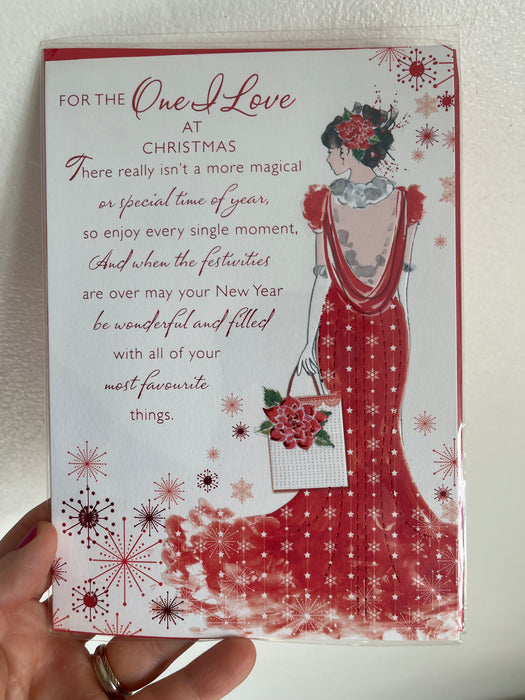 FOR THE One I Love
AT
CHRISTMAS
There really isn't a more magical
or special time of year,
so enjoy every single moment,
And when the festivities
are over may your New Year
be wonderful and filled
with all of your
most favourite
things.